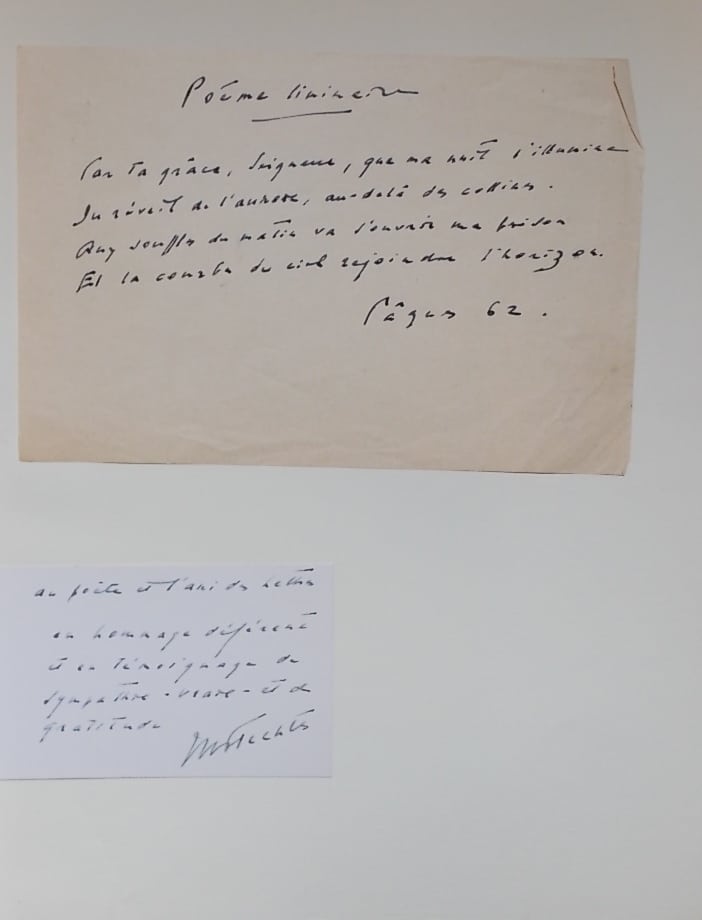 Poème liminaire
Par ta grâce, Seigneur, que ma nuit s'illumine
Du réveil de l'aurore, au-delà des collines.
Aux souffles du matin va s'ouvrir ma prison
Et la courbe du ciel rejoindre l'horizon.
Pâques 62.
au poète et l'ami des Lettres
en hommage déférent
et en témoignage de
sympathie - vraie - et de
gratitude